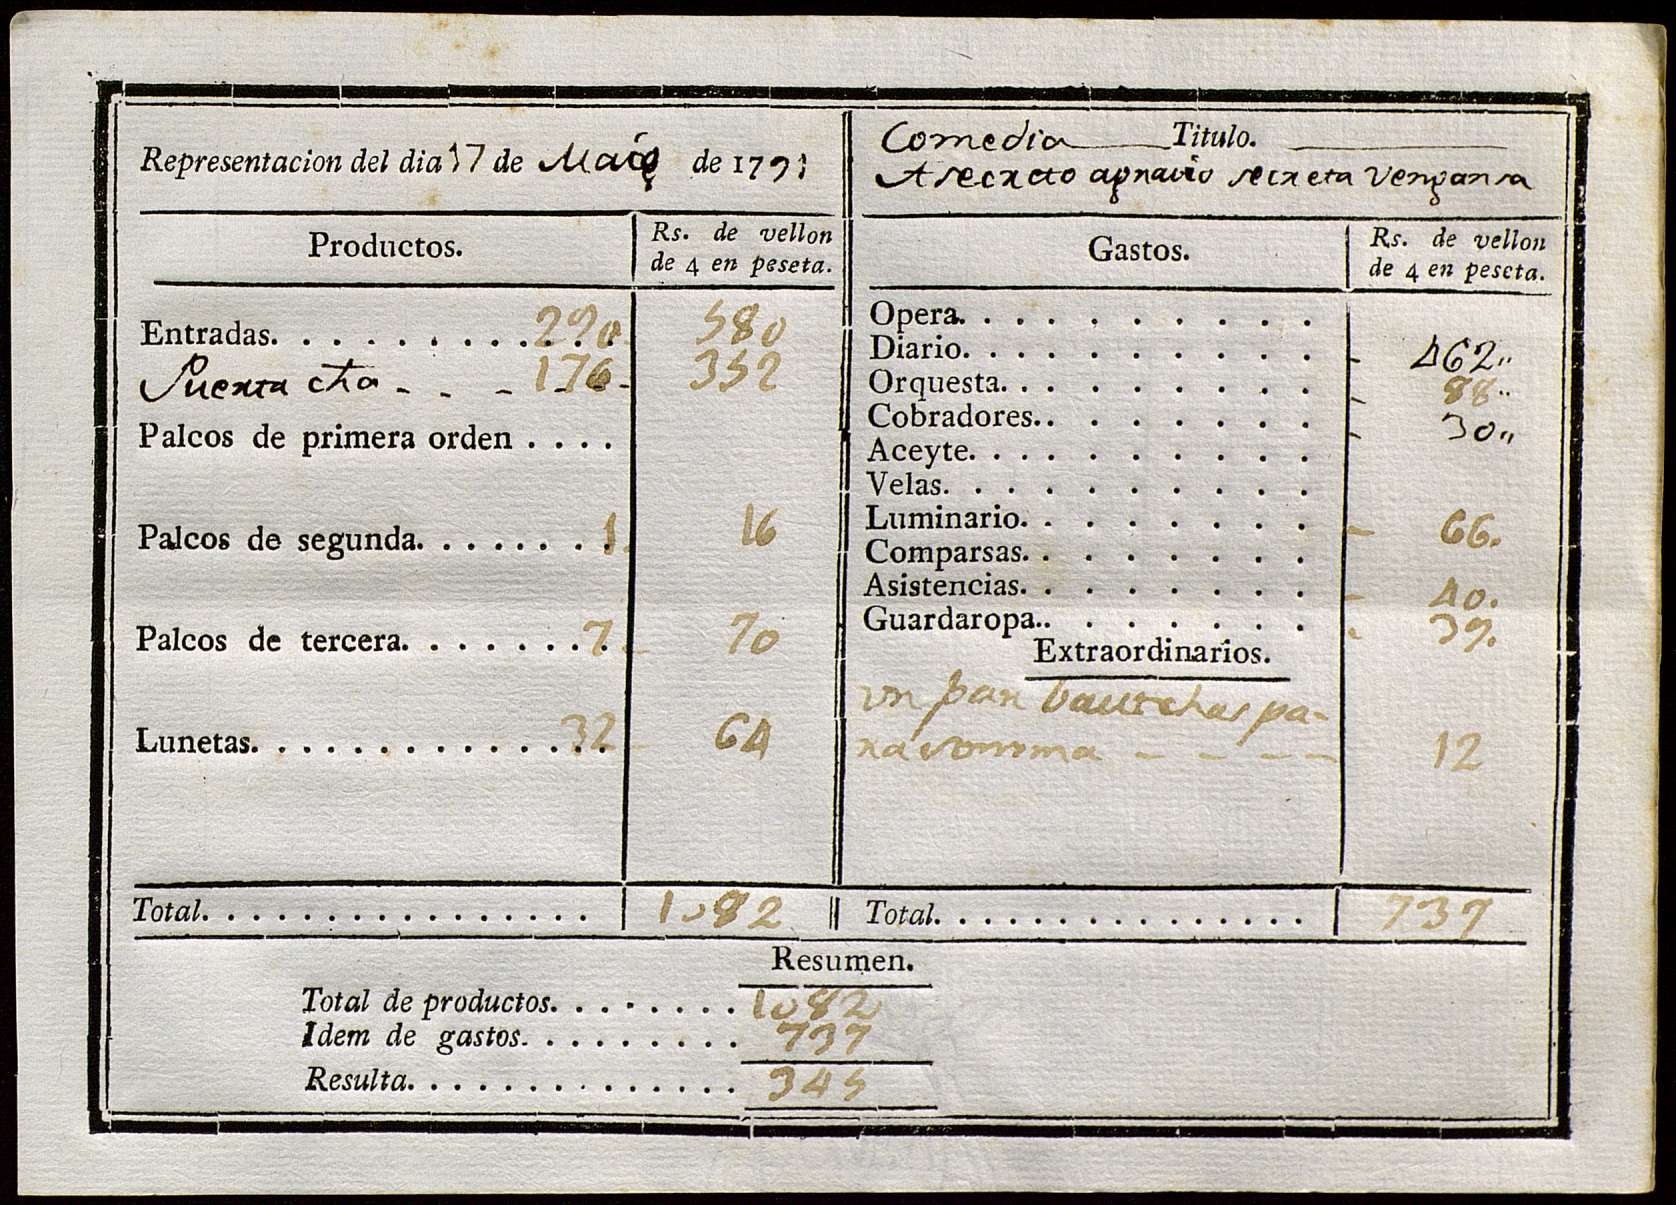 Representacion del dia 17 de Maio de 1791
Productos. Rs. de vellon de 4 en peseta.
Entradas. . . . . . . . . . . 290 580
Puerta cha - - - 176 - 352
Palcos de primera orden . . . .
Palcos de segunda. . . . . . . . 1 16
Palcos de tercera. . . . . . . . 7 70
Lunetas. . . . . . . . . . . . . . 32 64
Total. . . . . . . . . . . . . . . . 1082
Comedia Titulo.
A secreto agravio secreta Vengansa
Gastos. Rs. de vellon de 4 en peseta.
Opera. . . . . . . . . .
Diario. . . . . . . . . . 462
Orquesta. . . . . . . . . 88
Cobradores. . . . . . . . 30
Aceyte. . . . . . . . . .
Velas. . . . . . . . . .
Luminario. . . . . . . . 66.
Comparsas. . . . . . . .
Asistencias. . . . . . . . 40.
Guardaropa.. . . . . . . 39.
Extraordinarios.
un par pa-
ra 12
Total. . . . . . . . . . . . . . . 737
Resumen.
Total de productos. . . . . . . . 1082
Idem de gastos. . . . . . . . . 737
Resulta. . . . . . . . . . . . . . 345